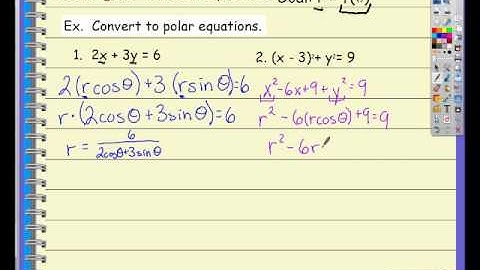 Ex. Convert to polar equations.
1. 2x + 3y = 6
2(rcosθ)+3(rsinθ)=6
r·(2cosθ+3sinθ)=6
r = 6/(2cosθ+3sinθ)
2. (x - 3)²+ y²= 9
x²-6x+9+y²=9
r²-6(rcosθ)+9=9
r²-6r